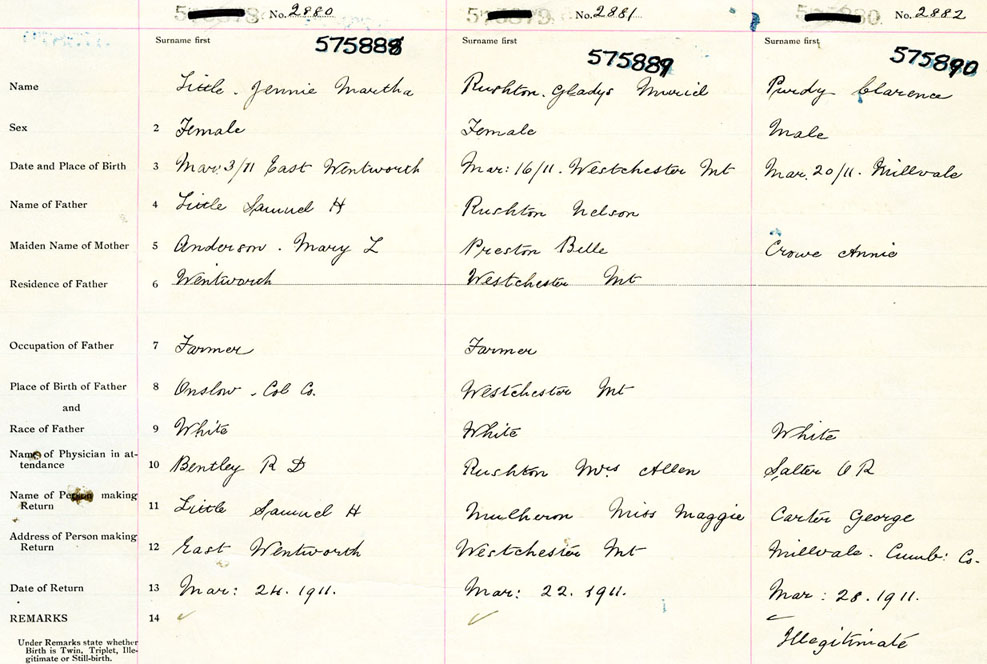 No. 2880 No. 2881 No. 2882
Surname first Surname first Surname first
575888 575889 575890
Name Little. Jennie Martha Rushton. Gladys Muriel Purdy Clarence
Sex 2 Female Female Male
Date and Place of Birth 3 Mar. 3/11 East Wentworth Mar: 16/11. Westchester Mt Mar. 20/11. Millvale
Name of Father 4 Little Samuel H Rushton Nelson
Maiden Name of Mother 5 Anderson. Mary L Preston Belle Crowe Annie
Residence of Father 6 Wentworth Westchester Mt
Occupation of Father 7 Farmer Farmer
Place of Birth of Father 8 Onslow. Col Co. Westchester Mt
and
Race of Father 9 White White White
Name of Physician in at-
tendance 10 Bentley R D Rushton Mrs Allen Salter O R
Name of Person making
Return 11 Little Samuel H Mulheron Miss Maggie Carter George
Address of Person making
Return 12 East Wentworth Westchester Mt Millvale. Cumb: Co.
Date of Return 13 Mar: 24. 1911. Mar: 22. 1911. Mar: 28. 1911.
REMARKS 14 ✓ ✓ ✓
Under Remarks state whether
Birth is Twin, Triplet, Ille-
gitimate or Still-birth. Illegitimate